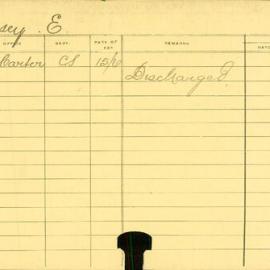 sey . E.
OFFICE DEPT. RATE OF PAY REMARKS DATE
Carter CS 15/6 Discharged.